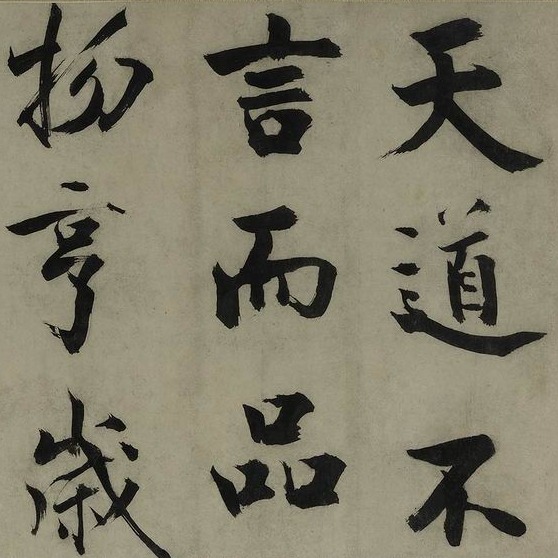 天道不
言而品
物亨歲